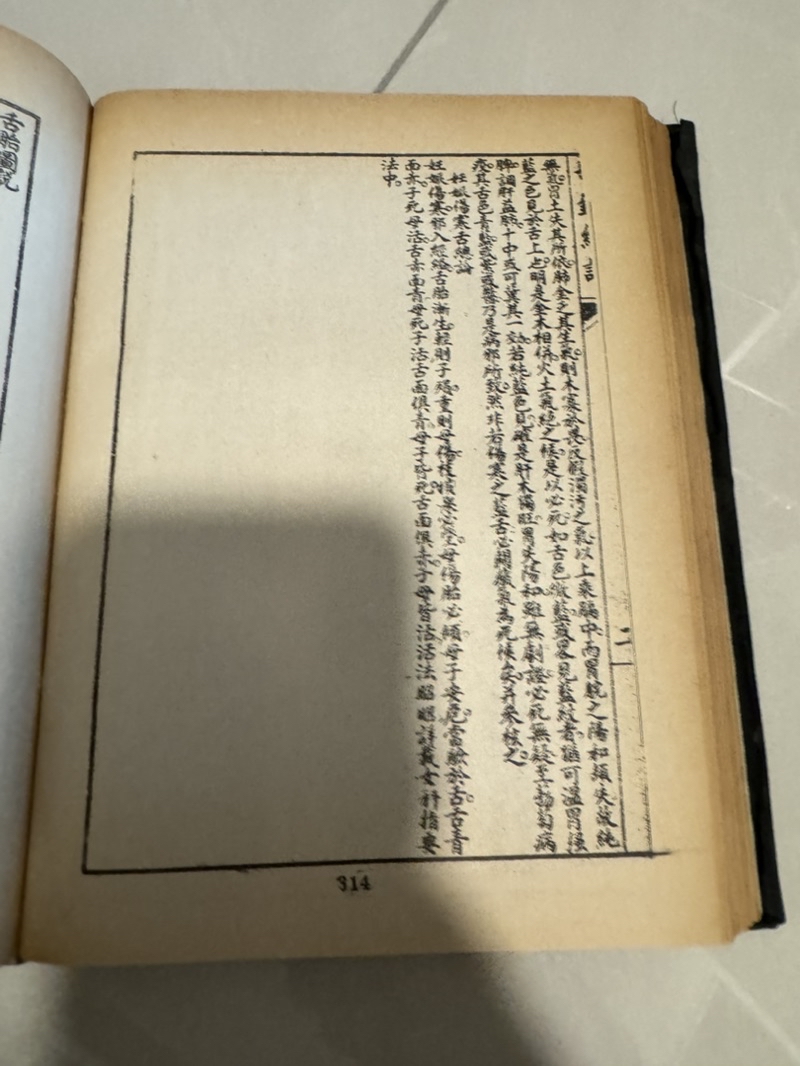 無氣胃土失其所依肺金乏其生氣則木寡於畏反假濁汚之氣以上乘膈中而胃脘之陽和頓失故純
藍之色見於舌上也明是金木相併火土氣絕之候是以必死如舌色微藍或略見藍紋者猶可溫胃強
脾調肝益肺十中或可冀其一效若純藍色見雖是肝木獨旺胃失陽和雖無劇證必死無疑至病
疫其舌色青藍或紫或醬乃是病邪所致然非若傷寒之藍舌必為死候矣并參核之
妊娠傷寒舌總論
妊娠傷寒邪入經絡舌胎漸生輕則子殞重則母傷枝損果必墜母傷胎必傾母子安危當驗於舌舌青
面赤子死母活舌赤面青母死子活舌面俱青母子皆死舌面俱赤子母皆活活法昭昭詳載女科指要
法中
314
舌胎圖說